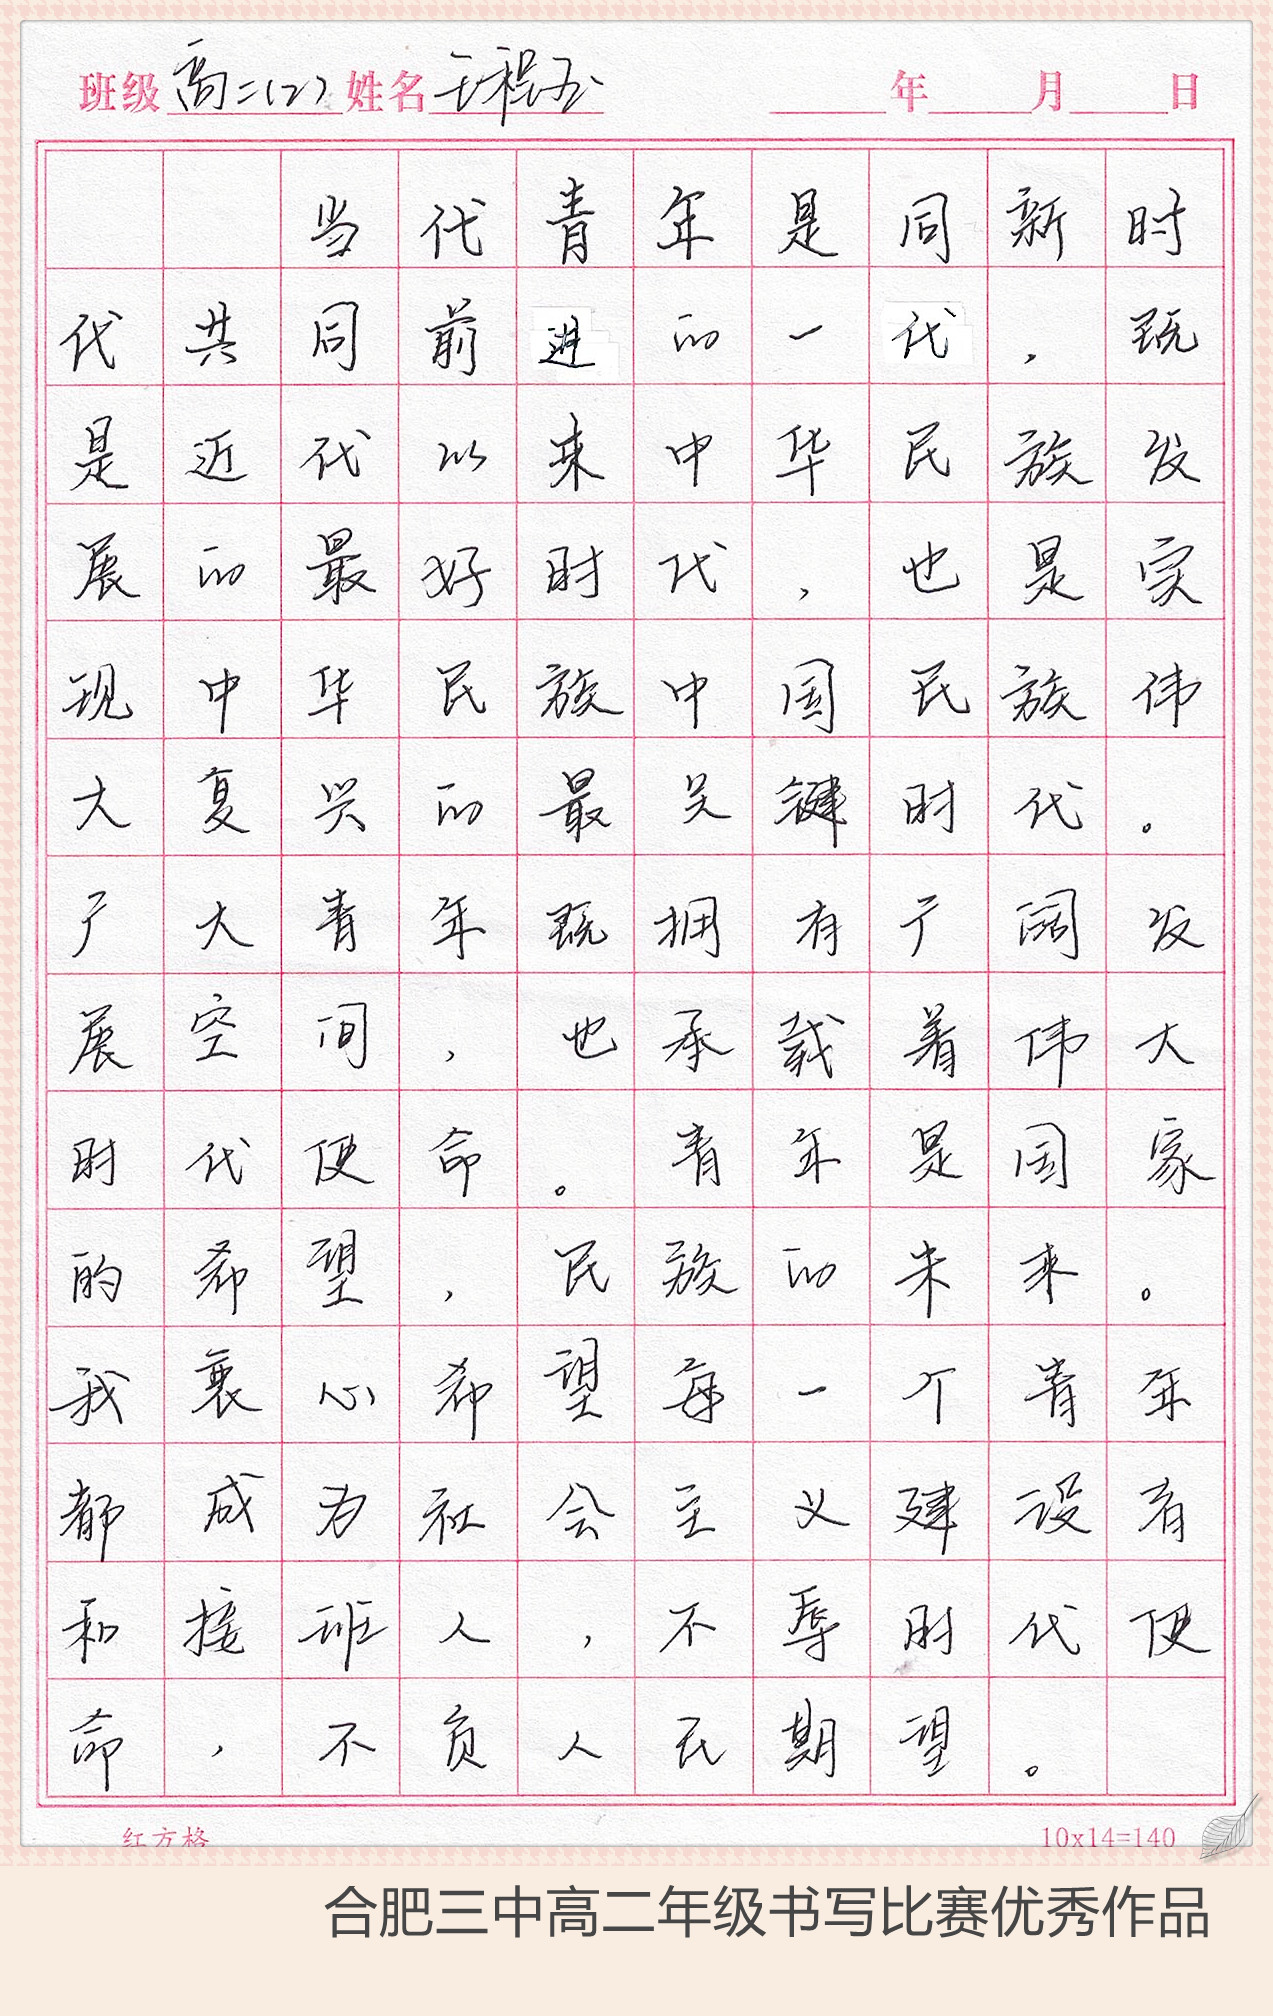 班级高二(2)姓名王程玉 年 月 日
当代青年是同新时
代共同前进的一代，既
是近代以来中华民族发
展的最好时代，也是实
现中华民族中国民族伟
大复兴的最关键时代。
广大青年既拥有广阔发
展空间，也承载着伟大
时代使命。青年是国家
的希望，民族的未来。
我衷心希望每一个青年
都成为社会主义建设者
和接班人，不辱时代使
命，不负人民期望。
红方格 10x14=140
合肥三中高二年级书写比赛优秀作品